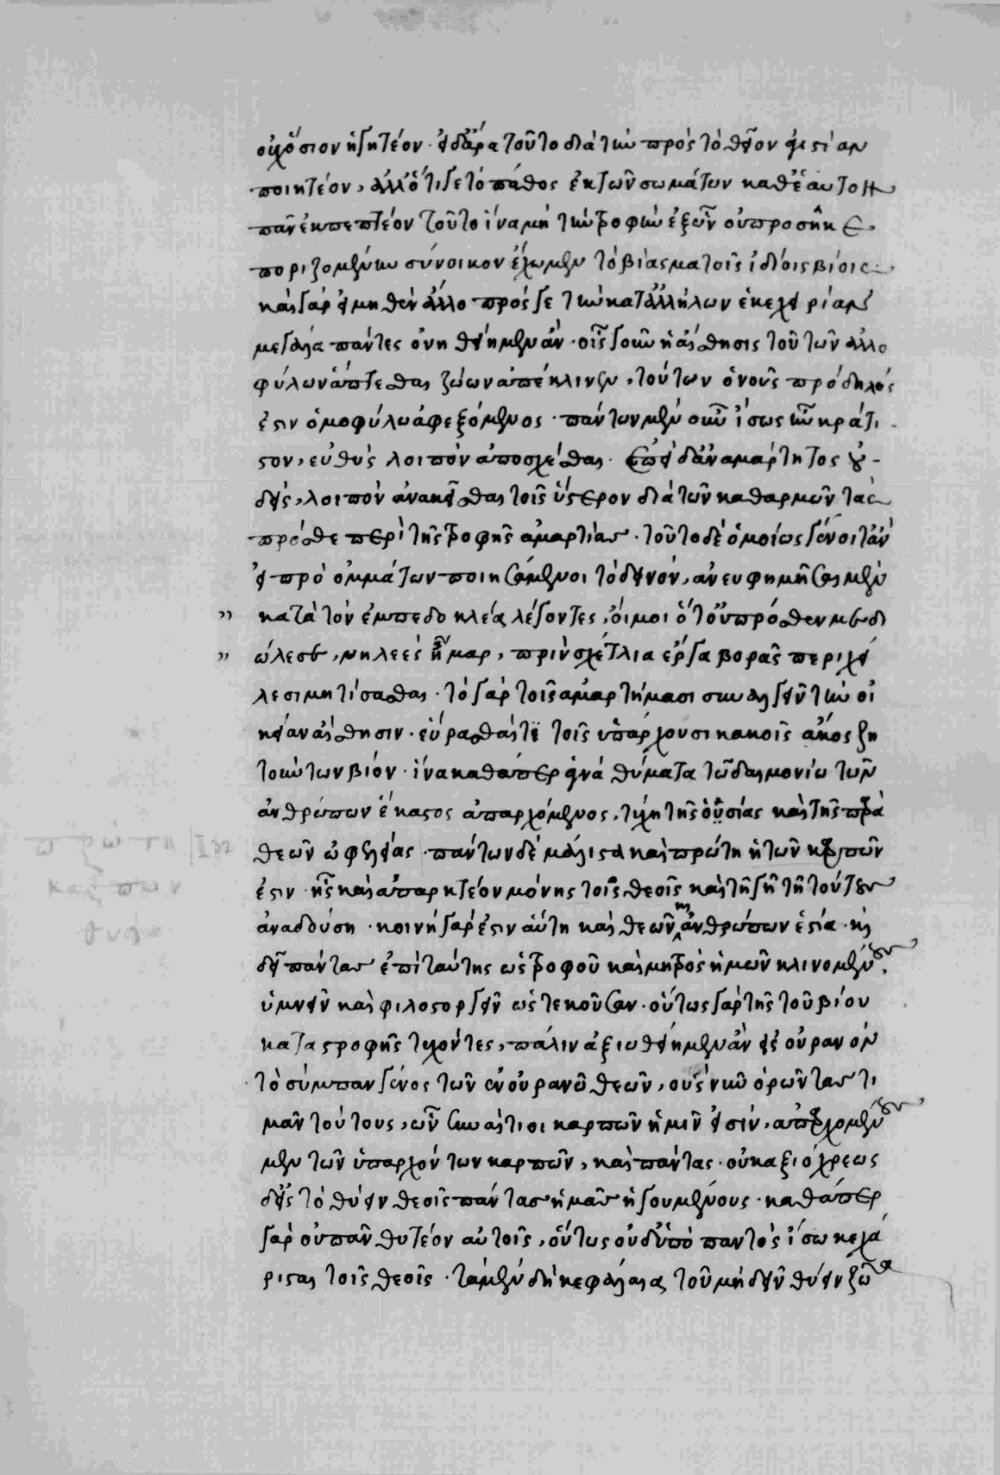 οὐχ ὅσιον ἡγητέον. εἰ δ' ἄρα τοῦτο διὰ τὴν πρὸς τὸ θεῖον ἁγιστίαν
ποιητέον, ἀλλ' ὅτι γε τὸ πάθος ἐκ τῶν σωμάτων καθ' ἑαυτὸ
πᾶν ἐκπεπτέον τοῦτο ἵνα μὴ τὴν τροφὴν ἐξ ὧν οὐ προσῆκε
ποριζόμενοι σύνοικον ἔχωμεν τὸ βίασμα τοῖς ἰδίοις βίοις.
καὶ γὰρ εἰ μηθὲν ἄλλο πρός γε τὴν κατ' ἀλλήλων ἐκεχειρίαν
μεγάλα πάντες ὀνηθείημεν ἄν. οἷς γοῦν ἡ αἴσθησις τοῦ τῶν ἀλλο
φύλων ἅπτεσθαι ζώων ἀπέκλινεν, τούτων ὁ νοῦς πρόδηλός
ἐστιν ὁμοφύλων ἀφεξόμενος. πάντων μὲν οὖν ἴσως ἦν κράτι
στον, εὐθὺς λοιπὸν ἀποσχέσθαι. ἐπεὶ δ' ἀναμάρτητος οὐ-
δείς, λοιπὸν ἀνακεῖσθαι τοῖς ὕστερον διὰ τῶν καθαρμῶν τὰς
πρόσθε περὶ τῆς τροφῆς ἁμαρτίας. τοῦτο δὲ ὁμοίως γένοιτ' ἂν
εἰ πρὸ ὀμμάτων ποιησάμενοι τὸ δεινόν, ἀνευφημήσαιμεν
κατὰ τὸν ἐμπεδοκλέα λέγοντες, οἴμοι ὅτ' οὐ πρόσθεν με δι
ώλεσε, νηλεὲς ἦμαρ, πρὶν σχέτλια ἔργα βορᾶς περὶ χεί
λεσι μητίσασθαι. τὸ γὰρ τοῖς ἁμαρτήμασι συναλγεῖν τὴν οἰ
κείαν αἴσθησιν. εὕρασθαί τι τοῖς ὑπάρχουσι κακοῖς ἄκος ζη
τούντων βίον. ἵνα καθάπερ ἁγνὰ θύματα τῶ δαιμονίω τῶν
ἀνθρώπων ἕκαστος ἀπαρχόμενος, τύχη τῆς ὁσίας καὶ τῆς παρὰ
θεῶν ὠφελείας. πάντων δὲ μάλιστα καὶ πρώτη ἡ τῶν καρπῶν
ἐστιν. ἧς καὶ ἀπαρκτέον μόνης τοῖς θεοῖς καὶ τῆ γῆ τῆ τούτους
ἀναδδύση. κοινὴ γάρ ἐστιν αὕτη καὶ θεῶν κ(αὶ) ἀνθρώπων ἑστία. κ(αὶ)
δεῖ πάντας ἐπὶ ταύτης ὡς τροφοῦ καὶ μητρὸς ἡμῶν κλινομένους.
ὑμνεῖν καὶ φιλοστοργεῖν ὡς τεκοῦσαν. οὕτως γὰρ τῆς τοῦ βίου
καταστροφῆς τυχόντες, πάλιν ἀξιωθείημεν ἂν εἰς οὐρανὸν
τὸ σύμπαν γένος τῶν ἐν οὐρανῶ θεῶν, οὓς νῦν ὁρῶντας τι
μᾶν τούτους, ὧν συναίτιοι καρπῶν ἡμῖν εἰσίν, ἀπαρχομένους
μὲν τῶν ὑπαρχόντων καρπῶν, καὶ πάντας. οὐκ ἀξιόχρεως
δ' εἰς τὸ θύειν θεοῖς πάντας ἡμᾶς ἡγουμένους. καθάπερ
γὰρ οὐ πᾶν θυτέον αὐτοῖς, οὕτως οὐδ' ὑπὸ παντὸς ἴσω κεχά
ρισται τοῖς θεοῖς. τὰ μὲν δὴ κεφάλαια τοῦ μὴ δεῖν θύειν ζῶα